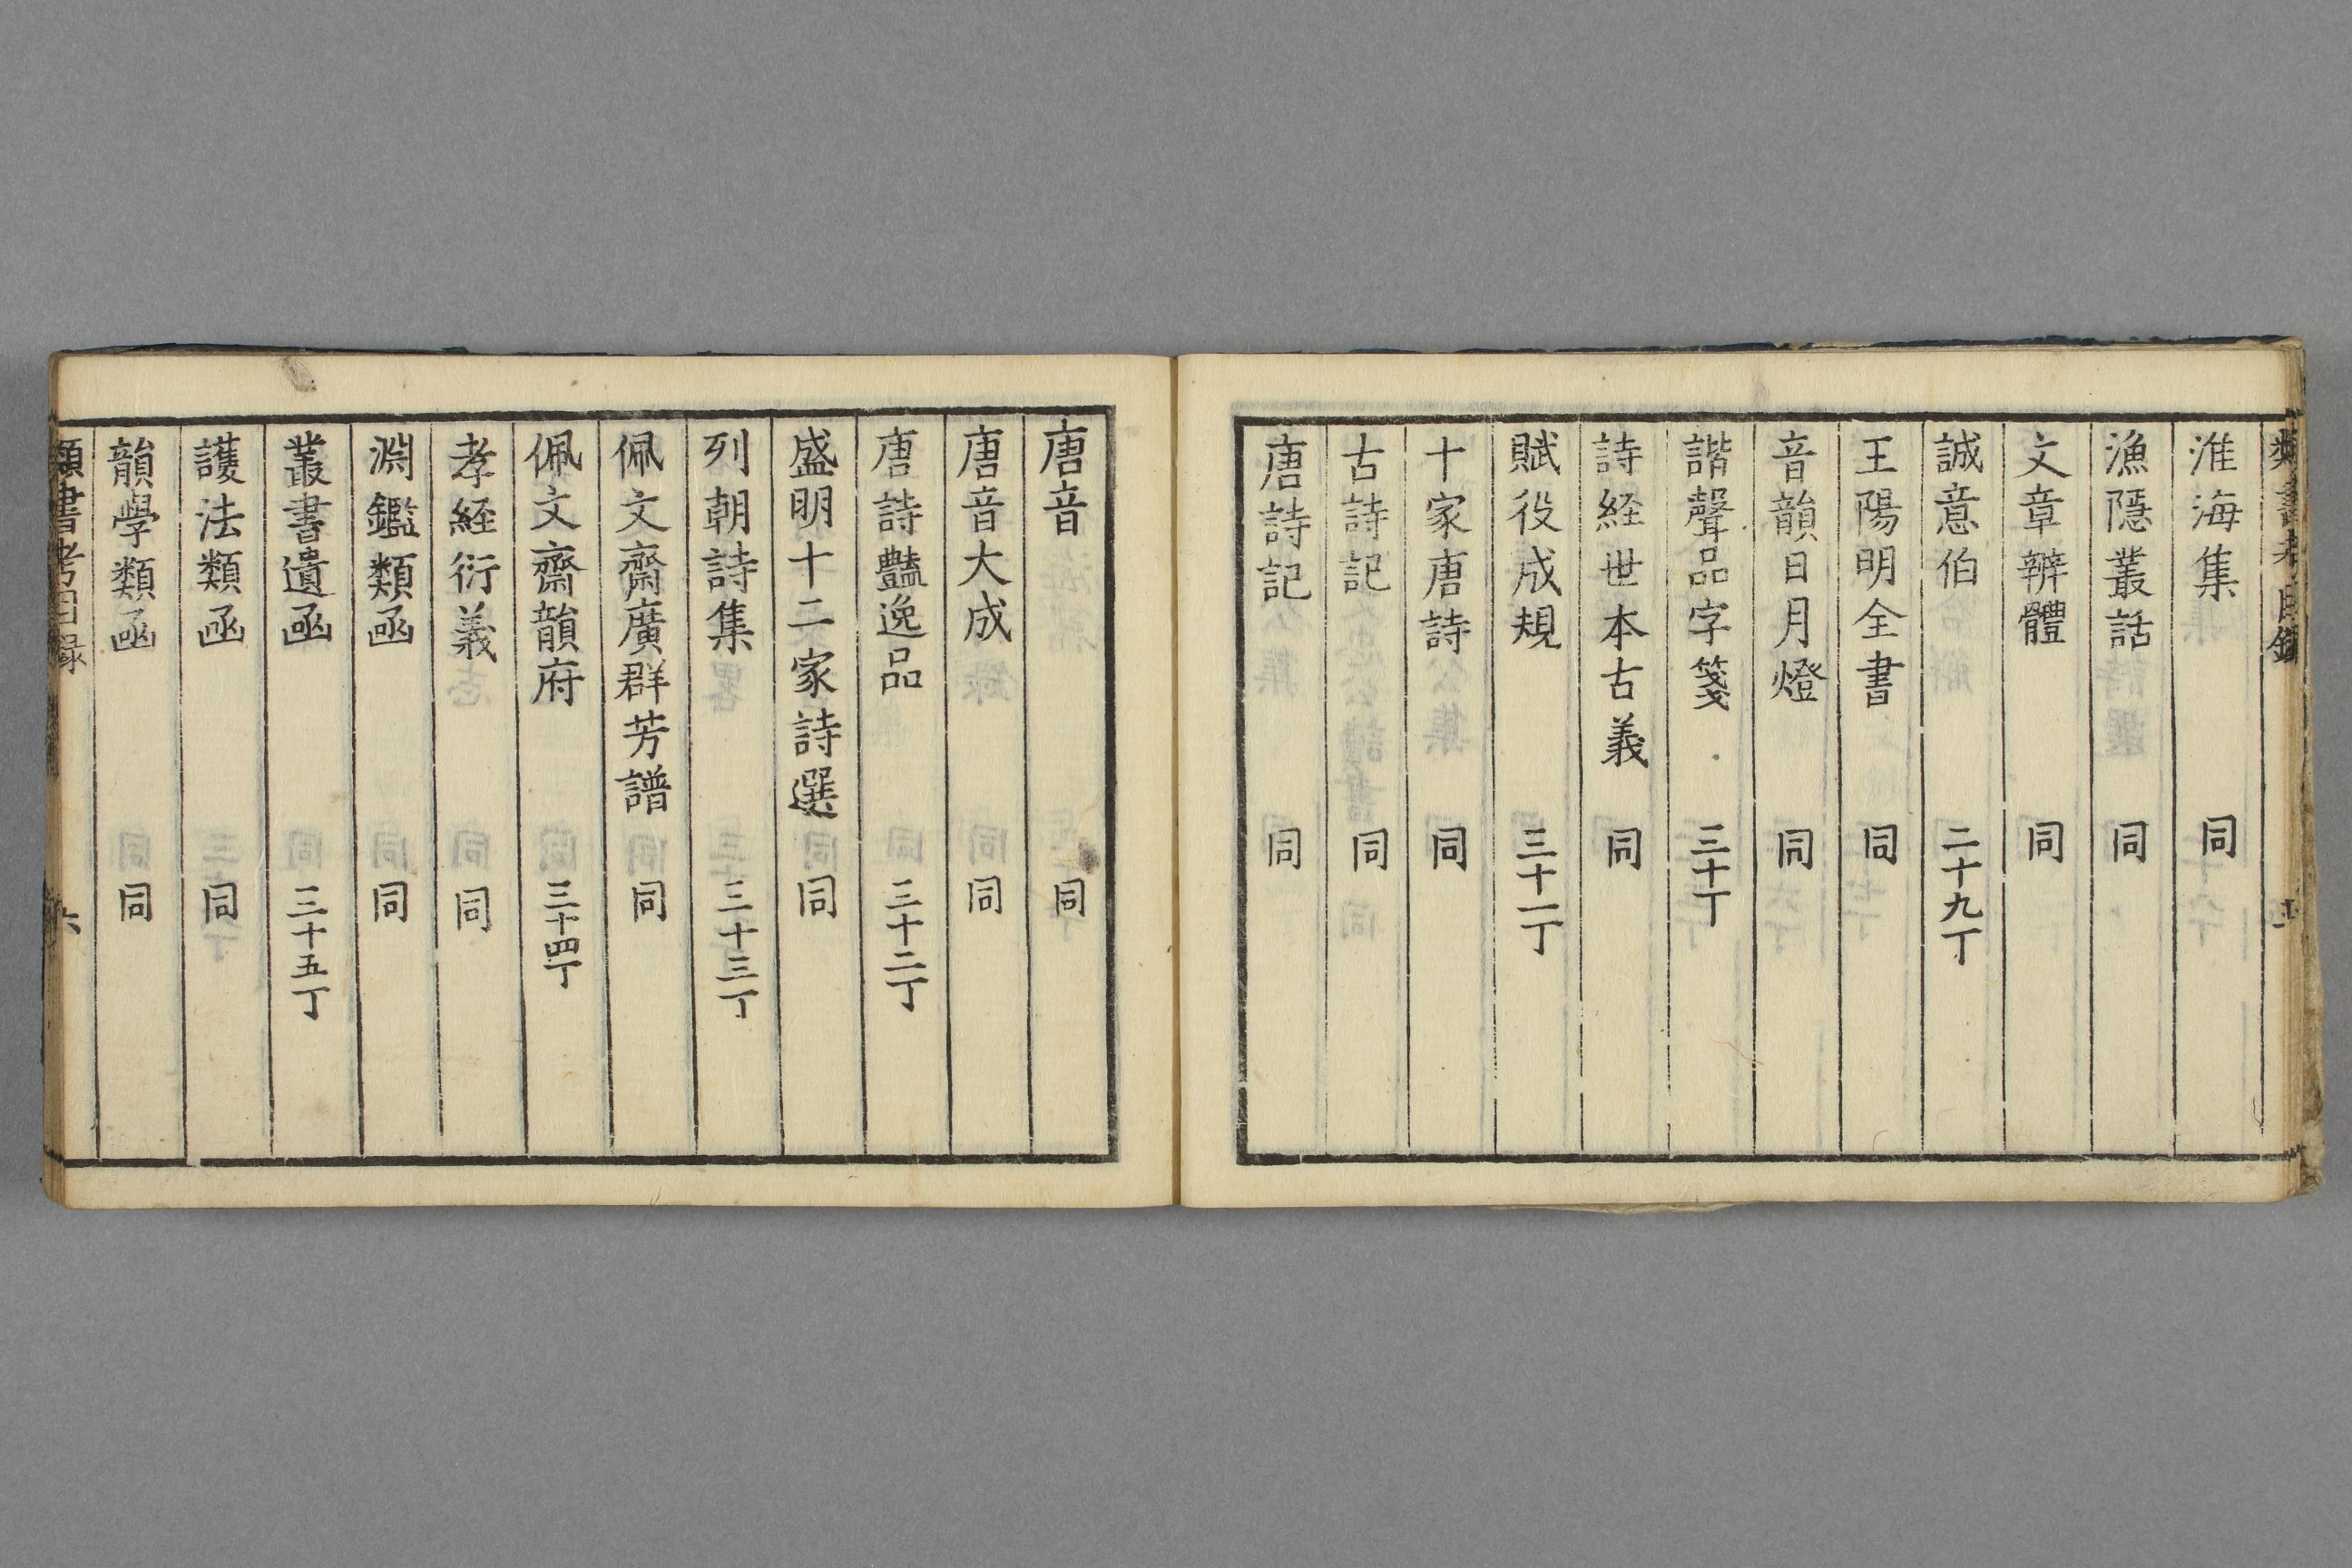 類書考目録
淮海集 同
漁隱叢話 同
文章辨體 同
誠意伯 二十九丁
王陽明全書 同
音韻日月燈 同
諧聲品字箋 三十丁
詩経世本古義 同
賦役成規 三十一丁
十家唐詩 同
古詩記 同
唐詩記 同
唐音 同
唐音大成 同
唐詩豔逸品 三十二丁
盛明十二家詩選 同
列朝詩集 三十三丁
佩文齋廣群芳譜 同
佩文齋韻府 三十四丁
孝経衍義 同
淵鑑類函 同
叢書遺函 三十五丁
護法類函 同
韻學類函 同
類書考目録 六